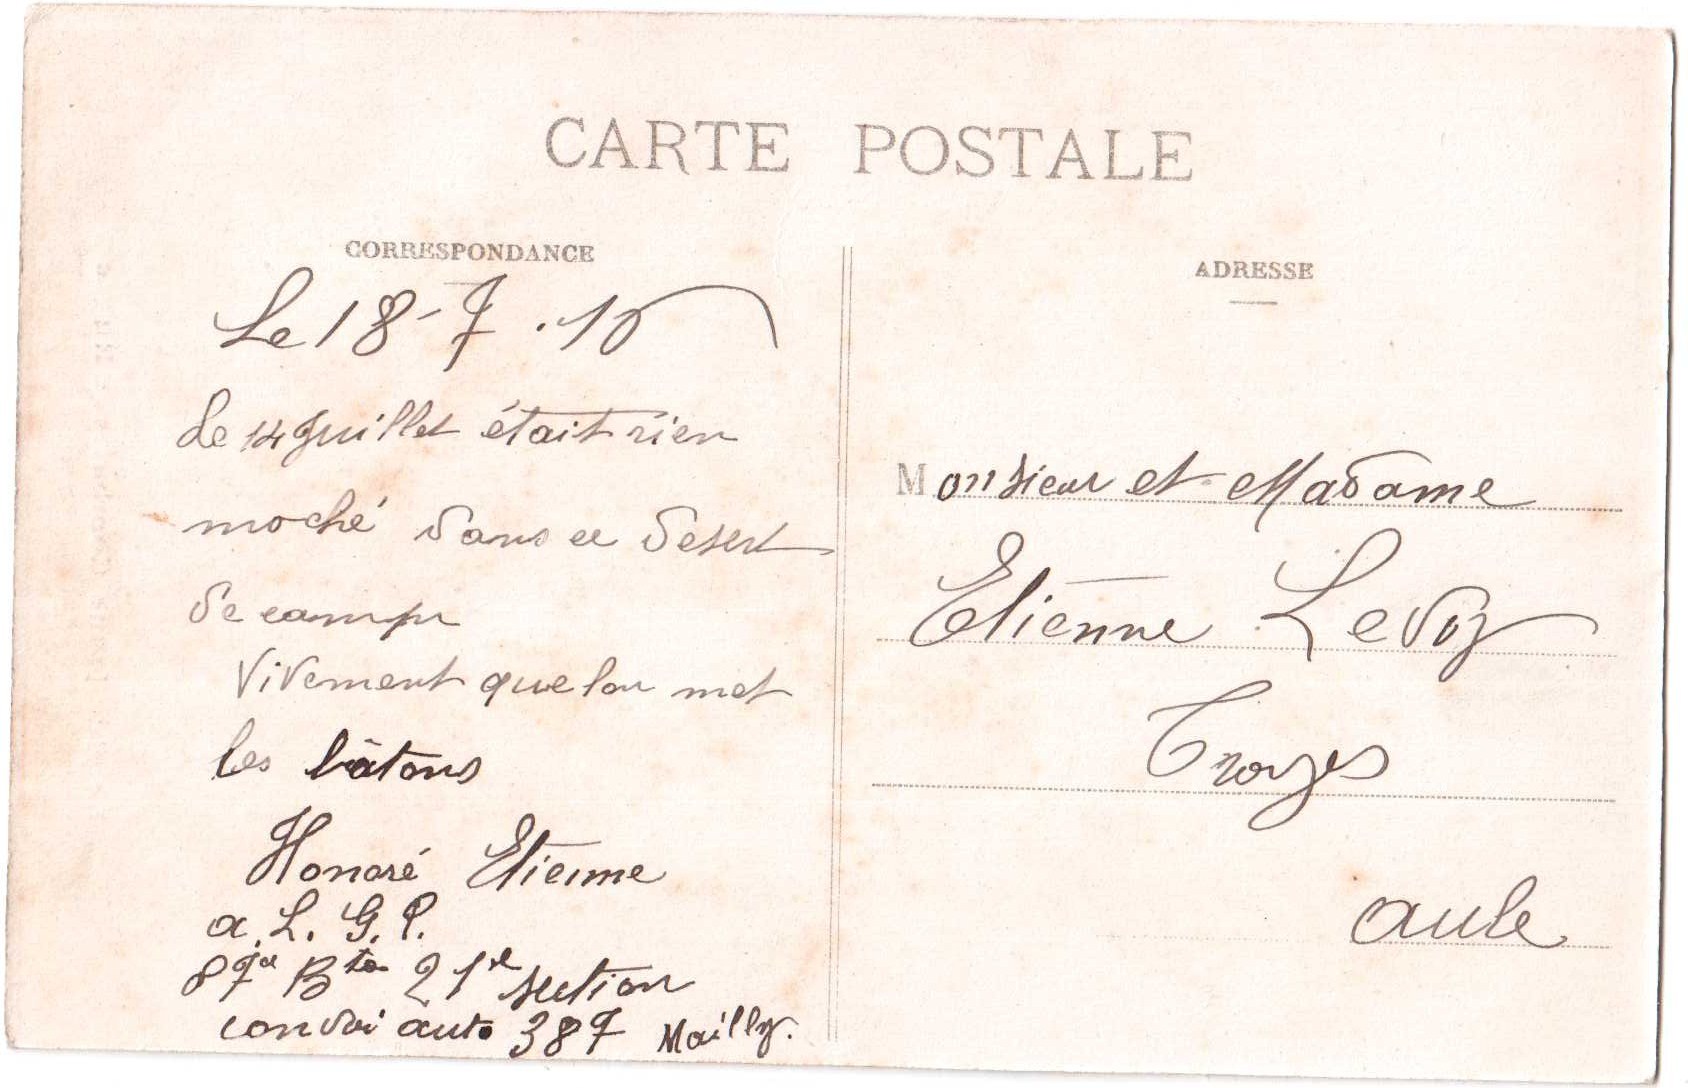 CARTE POSTALE
CORRESPONDANCE
Le 18-7.16
Le 14 Juillet était rien
moché dans ce desert
de camp
Vivement que lon met
les bâtons
Honoré Etienne
a. L. G. P.
87e Btie 21e section
convoi auto 387 Mailly.
ADRESSE
Monsieur et Madame
Etienne Levoy
Troyes
aube